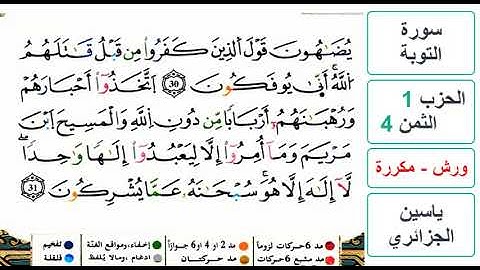 يُضَٰهُونَ قَوْلَ ٱلذِينَ كَفَرُوا۟ مِن قَبْلُ قَٰتَلَهُمُ
ٱللَّهُ أَنّ۪يٰ يُوفَكُونَ 30 ٱتَّخَذُوٓا۟ أَحْبَارَهُمْ
وَرُهْبَٰنَهُمُۥٓ أَرْبَابًا مِّن دُونِ ٱللَّهِ وَٱلْمَسِيحَ ٱبْنَ
مَرْيَمَ وَمَآ أُمِرُوٓا۟ إِلَّا لِيَعْبُدُوٓا۟ إِلَٰهًا وَٰحِدًا
لَّآ إِلَٰهَ إِلَّا هُوَ سُبْحَٰنَهُۥ عَمَّا يُشْرِكُونَ 31
سورة
التوبة
الحزب 1
الثمن 4
ورش - مكررة
ياسين
الجزائري
مد 6 حركات لزوماً
مد 2 أو 4 أو 6 جوازاً
إخفاء، ومواقع الغنّة
تفخيم
مد مشبع 6 حركات
مد حركتان
ادغام، ومالا يُلفظ
قلقلة